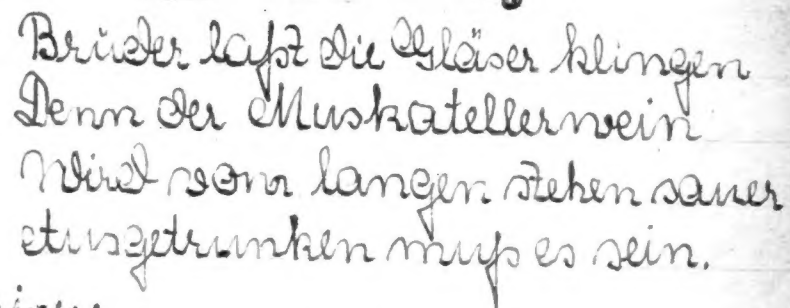 Brüder laßt die Gläser klingen
Denn der Muskatellerwein
Wird vom langen stehen sauer
Ausgetrunken muß es sein.